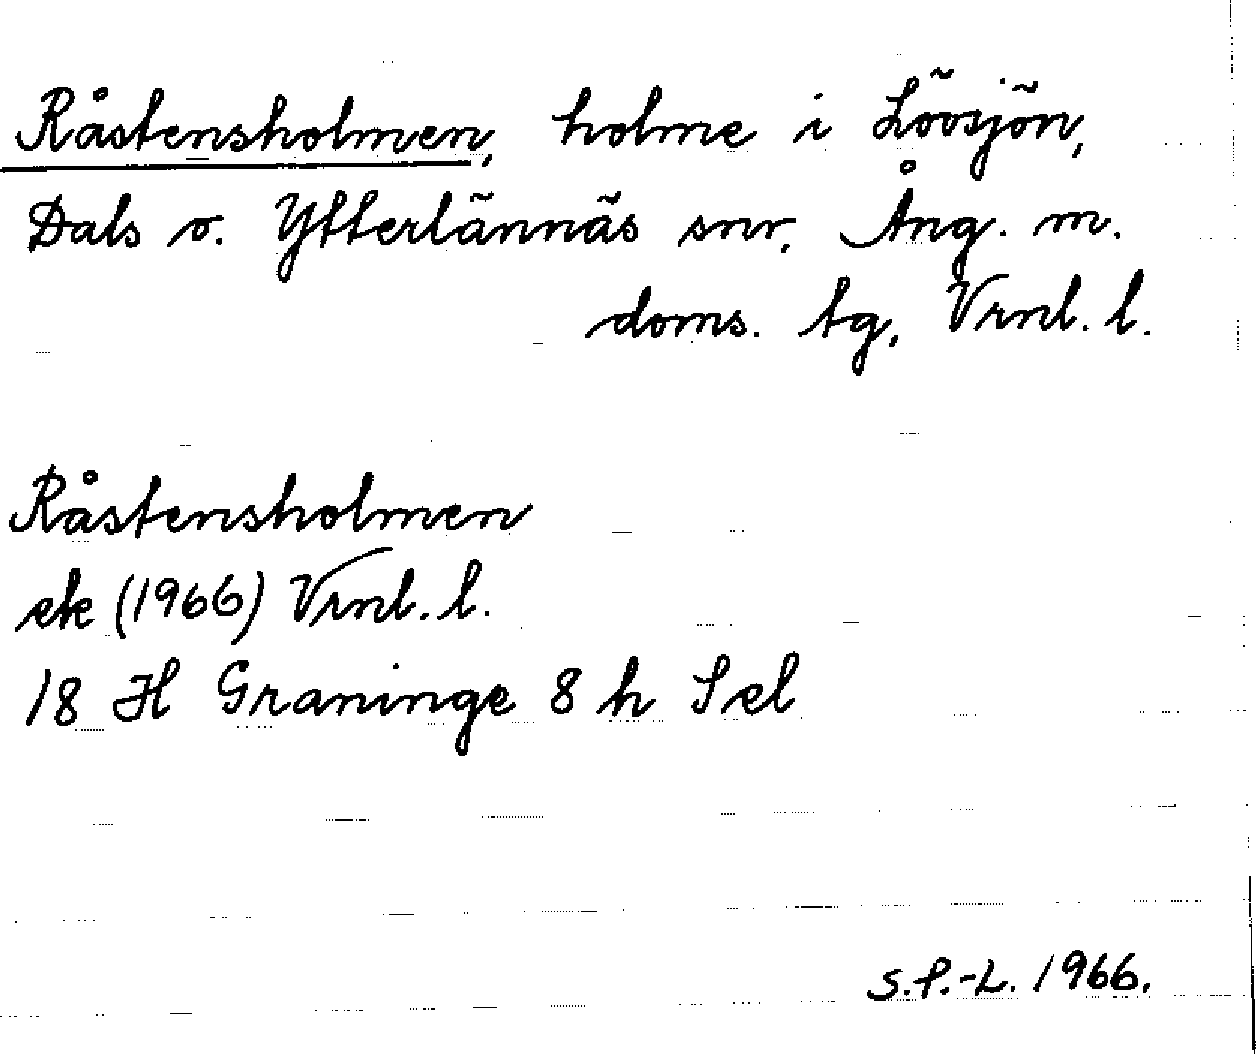 Råstensholmen, holme i Lövsjön,
Dals o. Ytterlännäs snr, Ång. m.
doms. tg, Vrnl. l.
Råstensholmen
ek (1966) Vrnl. l.
18 H Graninge 8 h Sel
S.P.-L. 1966.